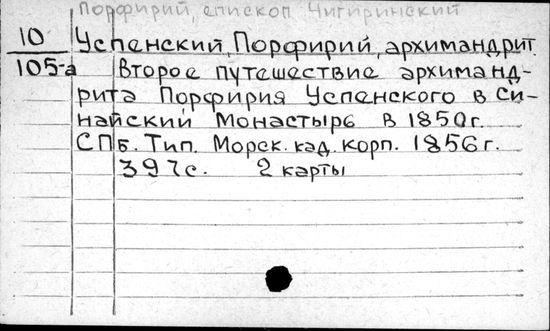 Порфирий, епископ Чигиринский
10 Успенский, Порфирий, архимандрит
105-а Второе путешествие архиманд-
рита Порфирия Успенского в Си-
найский монастырь в 1850 г.
СПб. Тип. Морск. кад. корп. 1856 г.
397 с. 2 карты